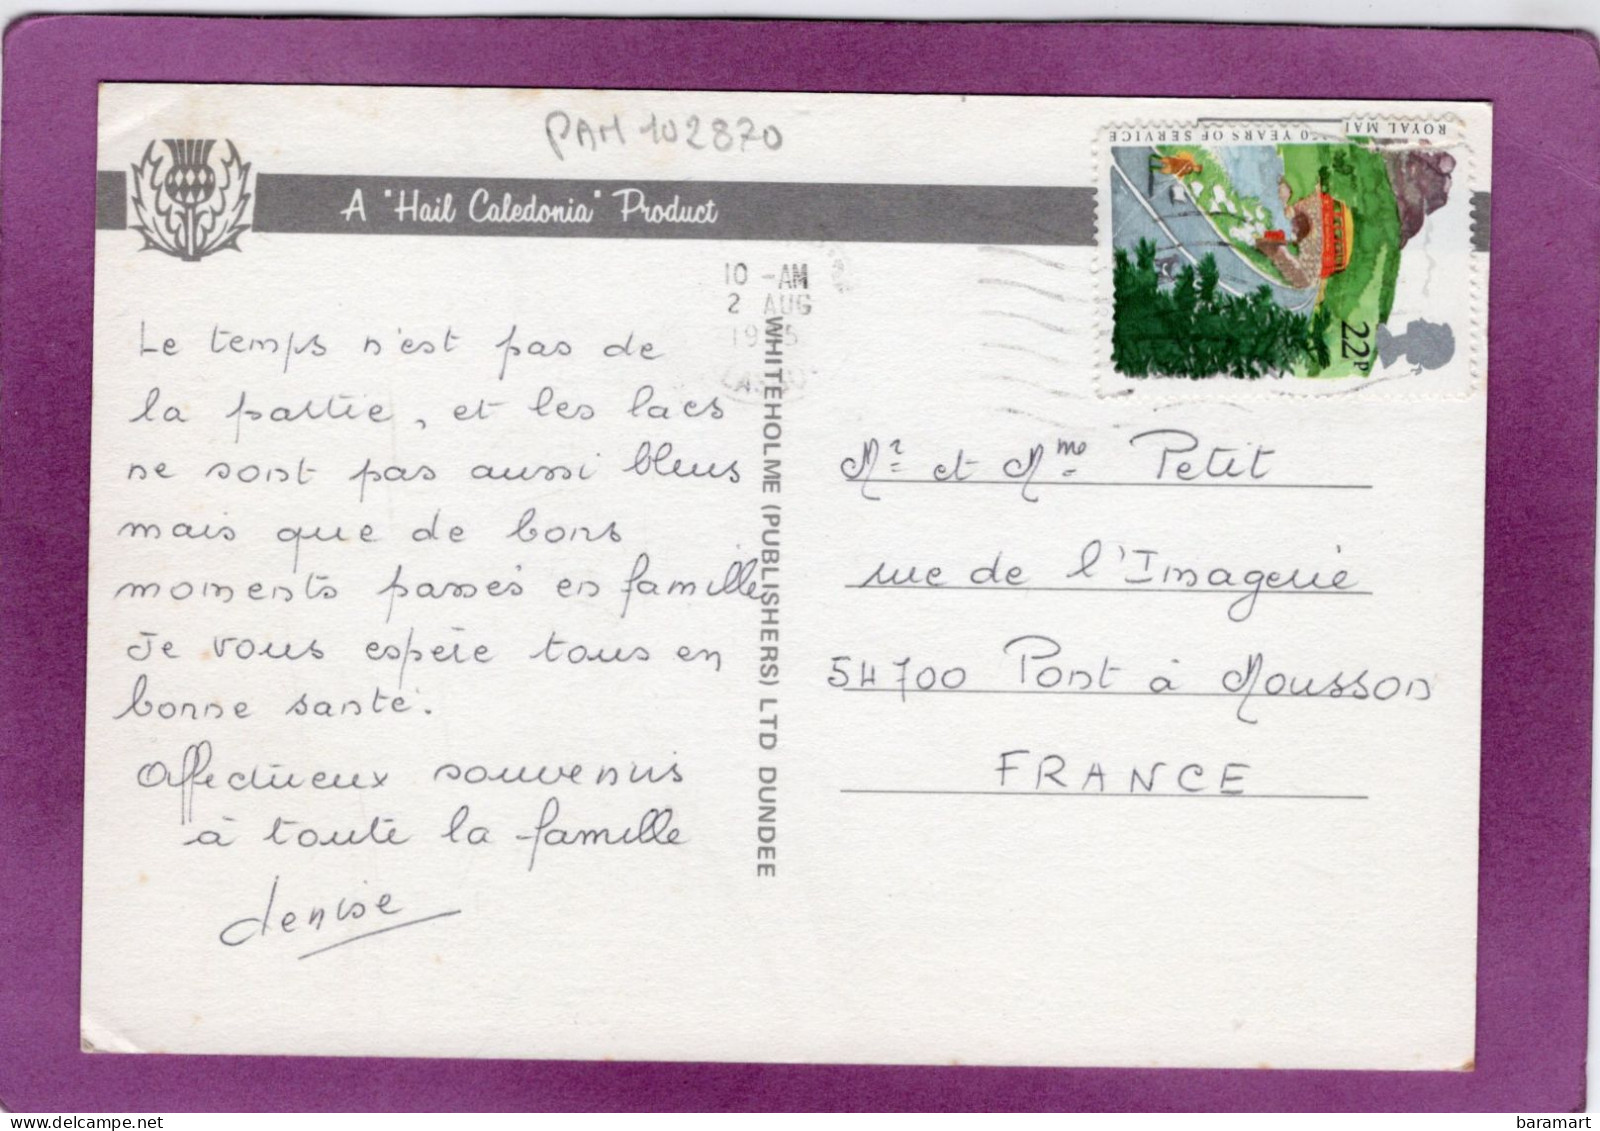 PAM 102870
A "Hail Caledonia" Product
ROYAL MAI
0 YEARS OF SERVICE
22P
10 -AM
2 AUG
Le temps n'est pas de
la partie, et les lacs
ne sont pas aussi bleus
mais que de bons
moments passés en famille
Je vous espère tous en
bonne santé.
Affectueux souvenirs
à toute la famille
denise
WHITEHOLME (PUBLISHERS) LTD DUNDEE
Mr et Mme Petit
rue de l'Imagerie
54700 Pont à Mousson
FRANCE
baramart